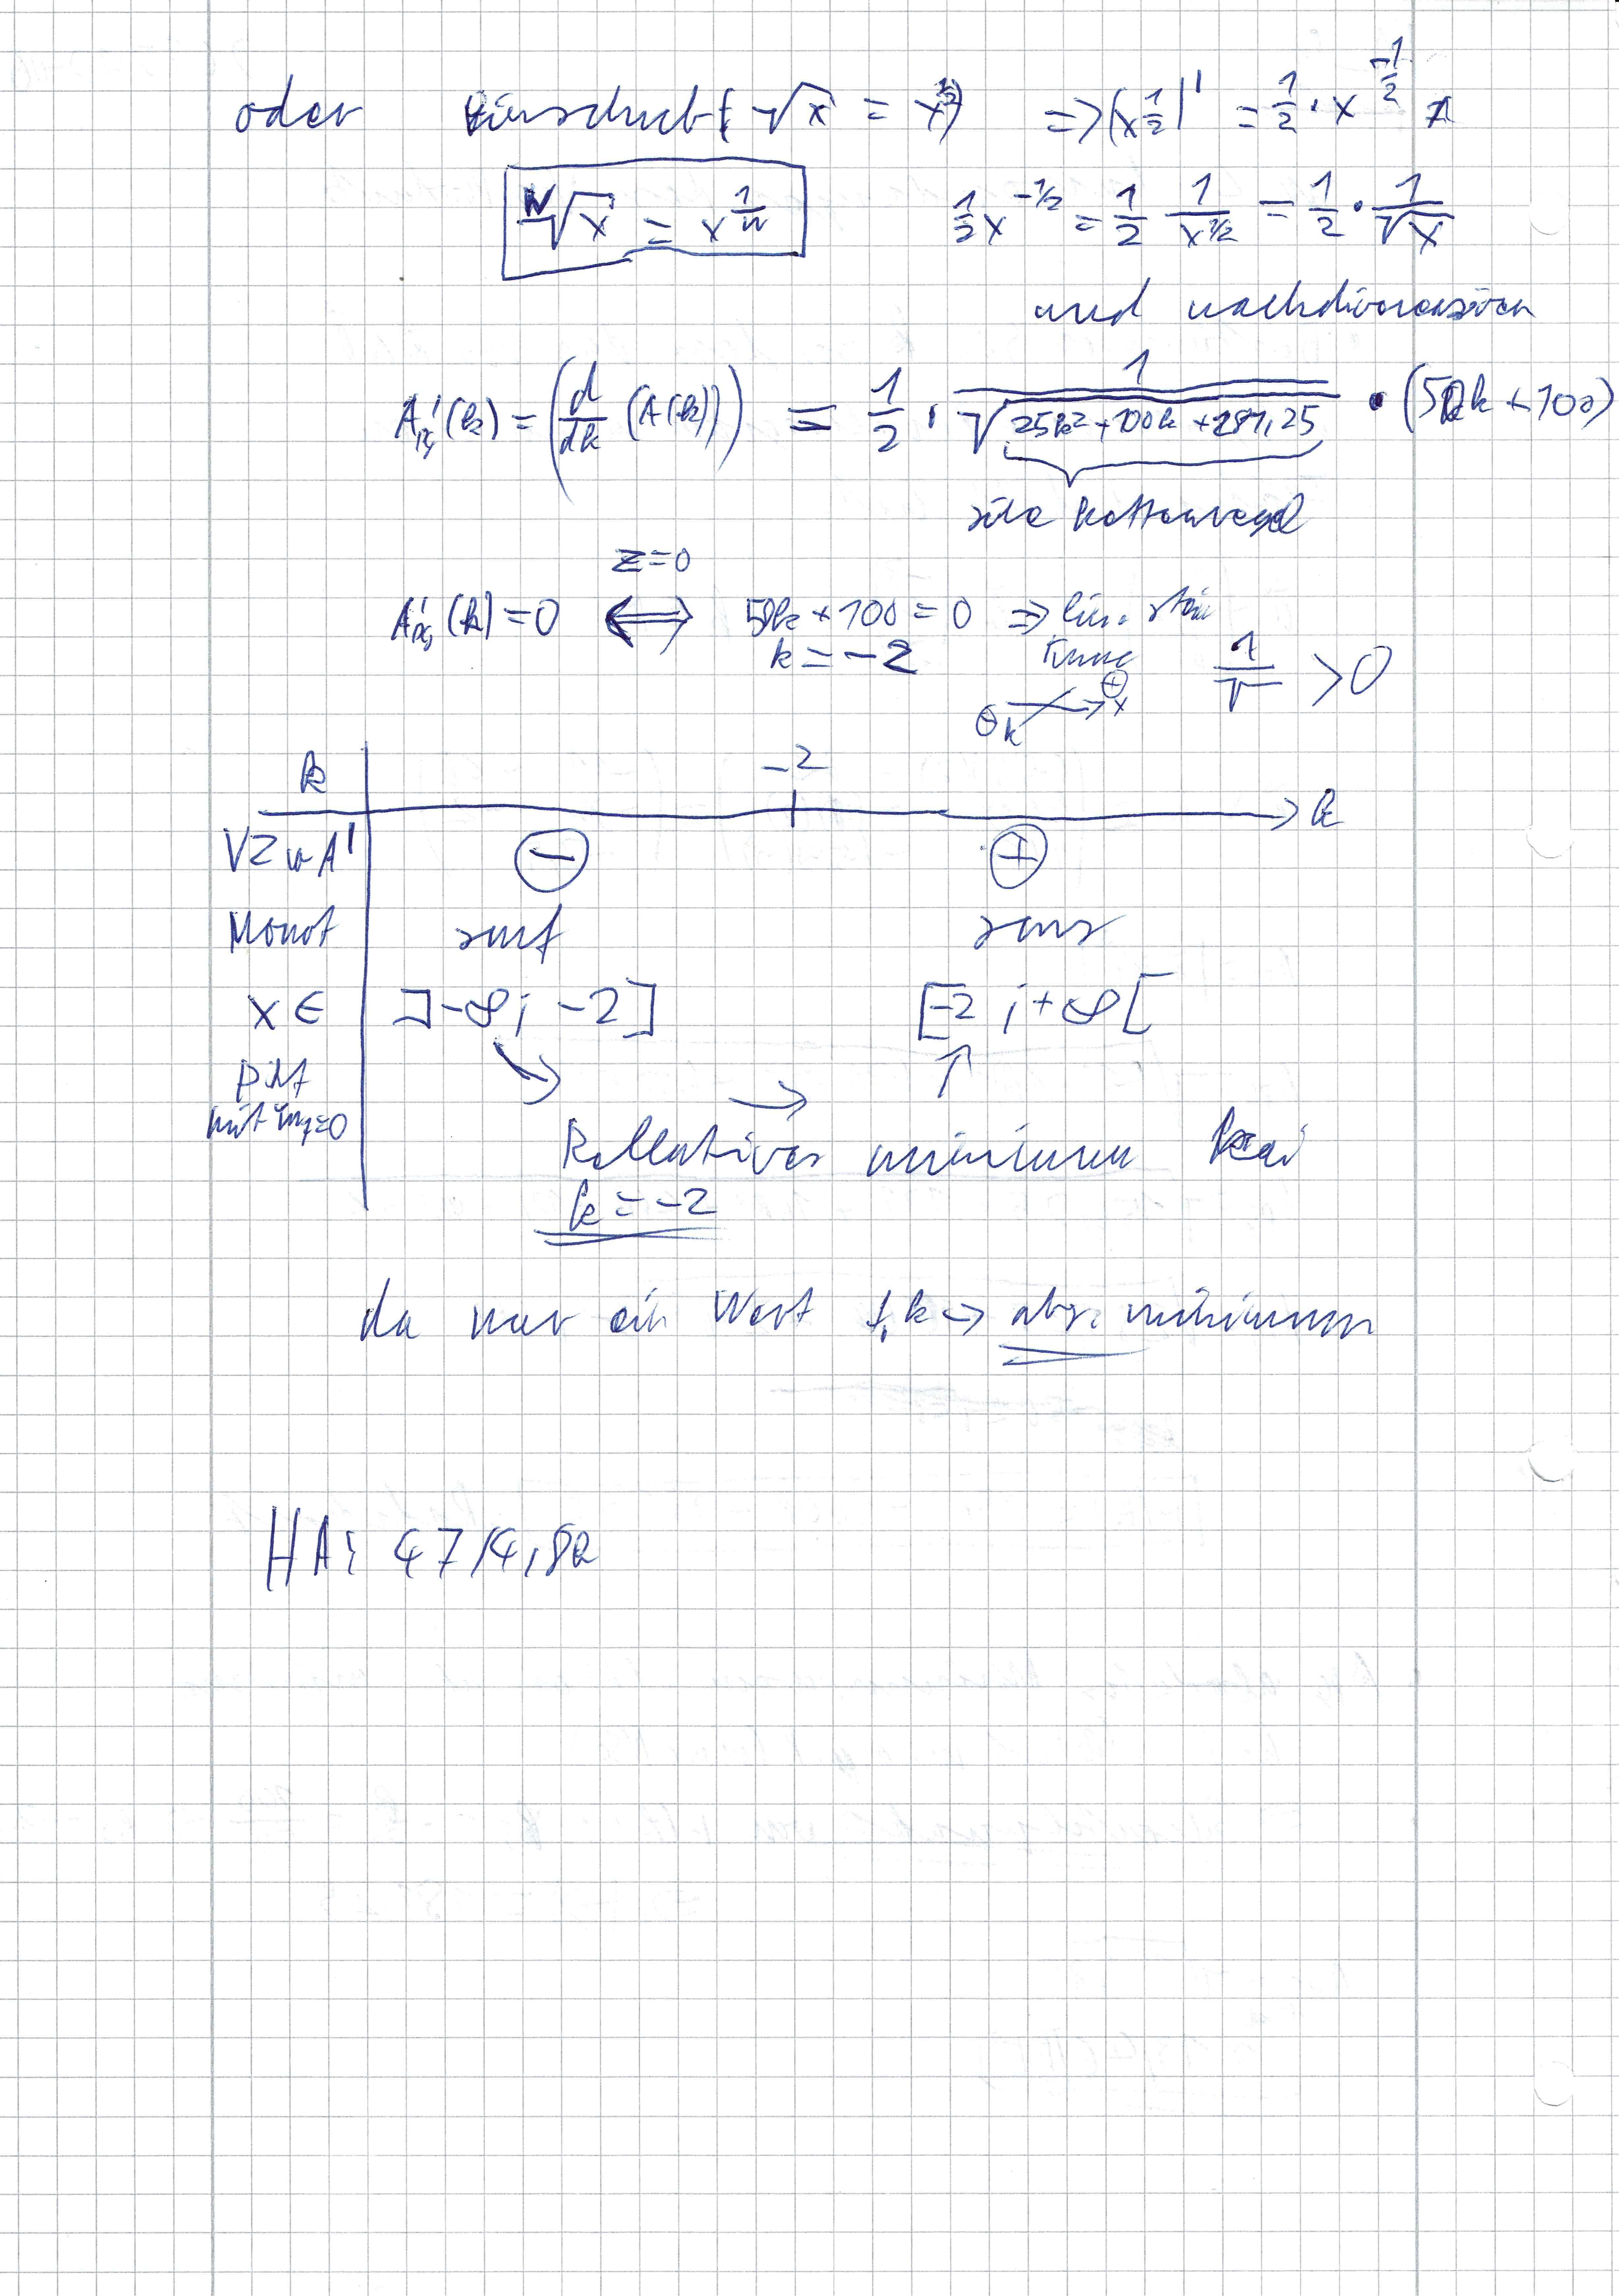 oder Einschub: (√x = x^½) => (x^½)' = ½ · x^-½
ᴺ√x = x^(1/n)
½x^-1/2 = ½ 1/x^1/2 = ½ · 1/√x
und nachdifferenzieren
A'(k) = (d/dk (A(k))) = 1/2 · 1/√(25k² + 100k + 281,25) · (50k + 100)
siehe Kettenregel
Z=0
A'(k) = 0 <=> 50k + 100 = 0 => lin. stei
k = -2 1/√ > 0
⊖ k ⊕ x
k -2 -> k
VZ v A' ⊖ ⊕
Monot smf sms
x ∈ ]-∞; -2] [-2 ; +∞[
Pkt
mit m=0
Rellatives minimum bei
k = -2
da nur ein Wert f. k -> abs. minimum
HA: 47/4,8a